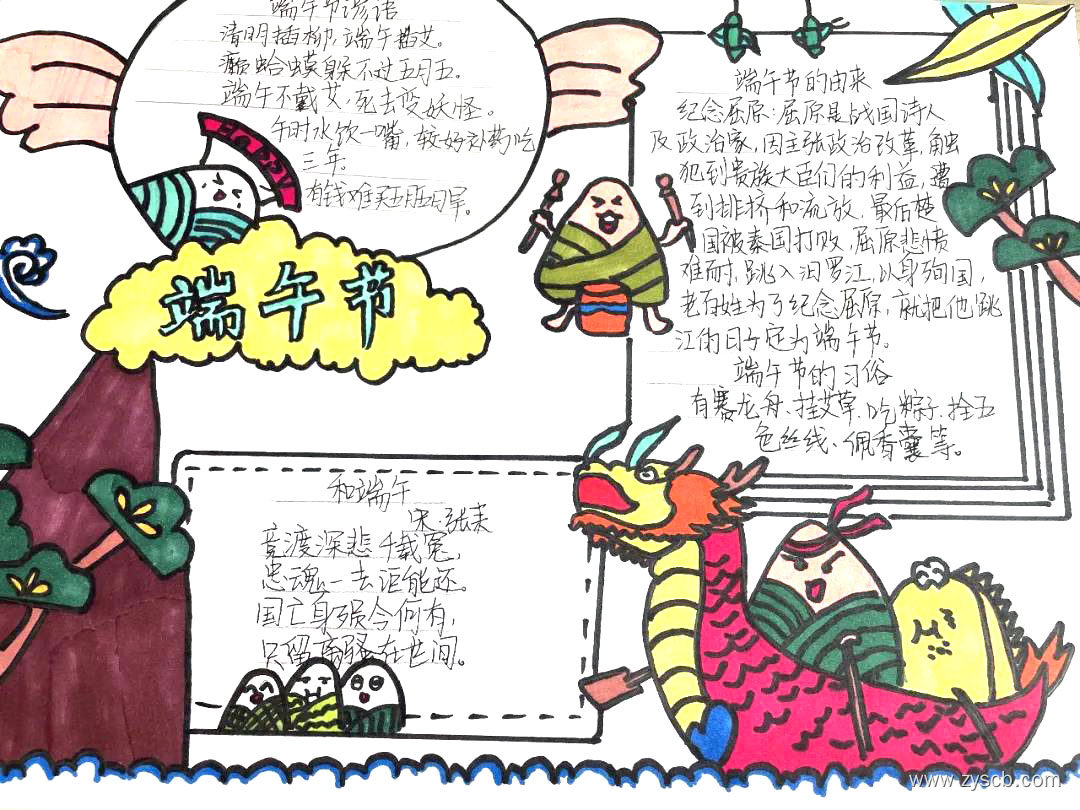 端午节谚语
清明插柳，端午插艾。
癞蛤蟆躲不过五月五。
端午不戴艾，死去变妖怪。
午时水饮一嘴，较好补药吃
三年。
有钱难买五月五日旱。
HAPPY
端午节
端午节的由来
纪念屈原：屈原是战国诗人
及政治家，因主张政治改革，触
犯到贵族大臣们的利益，遭
到排挤和流放，最后楚
国被秦国打败，屈原悲愤
难耐，跳入汨罗江，以身殉国，
老百姓为了纪念屈原，就把他跳
江的日子定为端午节。
端午节的习俗
有赛龙舟、挂艾草、吃粽子、拴五
色丝线、佩香囊等。
和端午
宋·张耒
竞渡深悲千载冤，
忠魂一去讵能还。
国亡身殒今何有，
只留离骚在世间。
www.zyscb.com